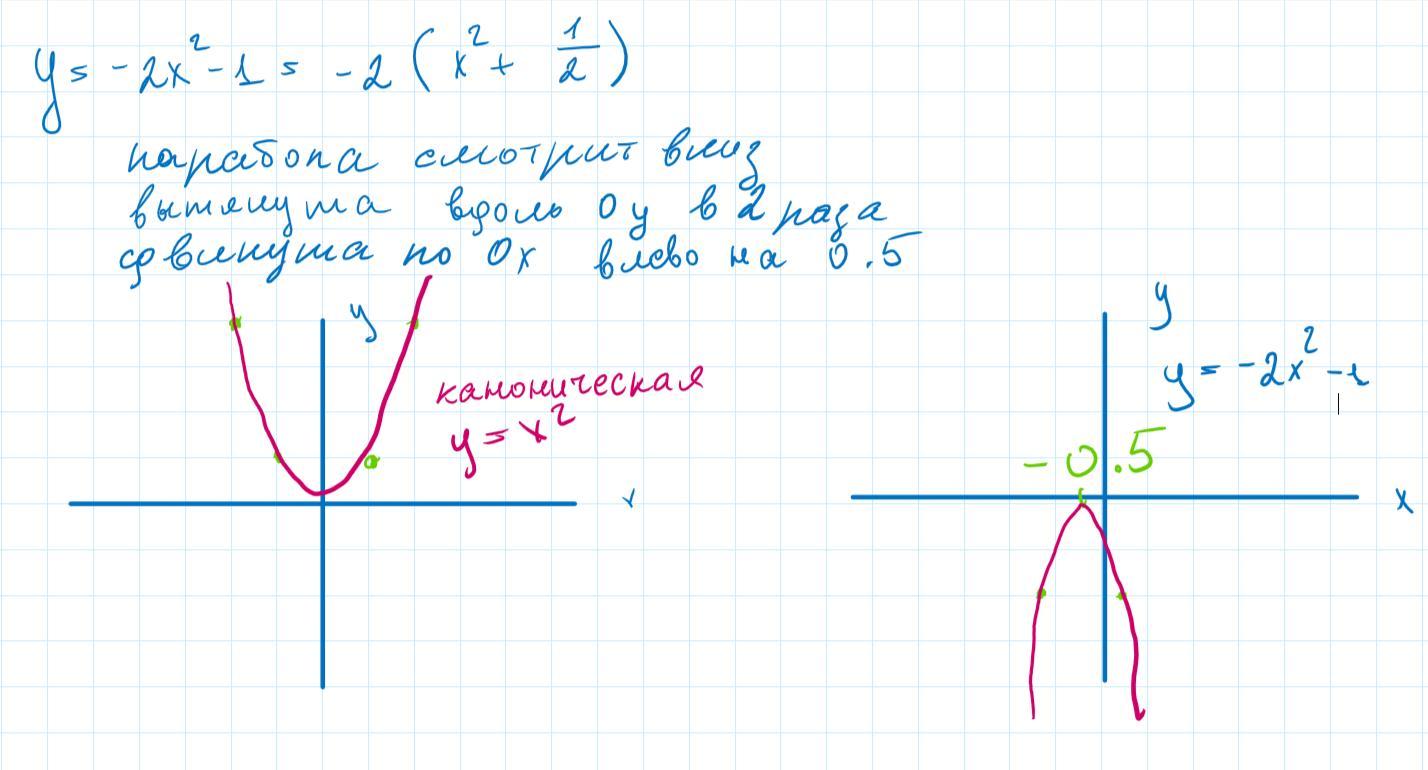 y = -2x² - 1 = -2 (x² + 1/2)
парабола смотрит вниз
вытянута вдоль Oy в 2 раза
сдвинута по Ox влево на 0.5
y
каноническая
y = x²
x
y
y = -2x² - 1
-0.5
x